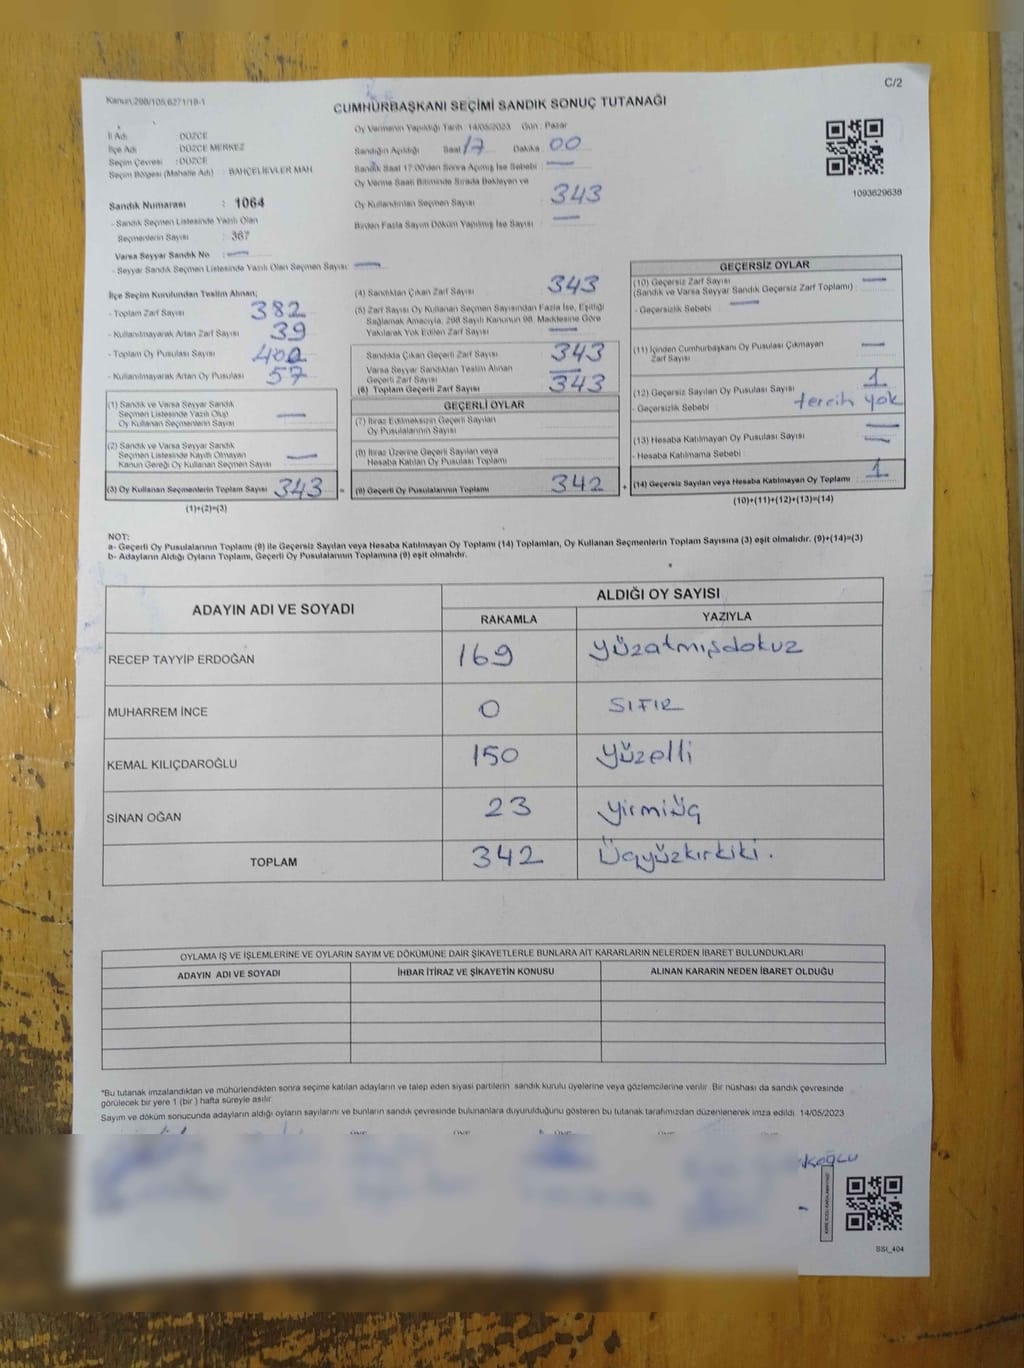 C/2
Kanun:298/105,6271/18-1
CUMHURBAŞKANI SEÇİMİ SANDIK SONUÇ TUTANAĞI
İl Adı : DÜZCE
İlçe Adı : DÜZCE MERKEZ
Seçim Çevresi : DÜZCE
Seçim Bölgesi (Mahalle Adı) : BAHÇELİEVLER MAH
Sandık Numarası : 1064
- Sandık Seçmen Listesinde Yazılı Olan
Seçmenlerin Sayısı : 367
Varsa Seyyar Sandık No : —
- Seyyar Sandık Seçmen Listesinde Yazılı Olan Seçmen Sayısı: —
Oy Vermenin Yapıldığı Tarih: 14/05/2023 Gün : Pazar
Sandığın Açıldığı Saat 17 Dakika : 00
Sandık Saat 17:00'den Sonra Açılmış İse Sebebi : —
Oy Verme Saati Bitiminde Sırada Bekleyen ve
Oy Kullandırılan Seçmen Sayısı : 343
Birden Fazla Sayım Döküm Yapılmış İse Sayısı : —
1093629638
İlçe Seçim Kurulundan Teslim Alınan;
- Toplam Zarf Sayısı : 382
- Kullanılmayarak Artan Zarf Sayısı : 39
- Toplam Oy Pusulası Sayısı : 400
- Kullanılmayarak Artan Oy Pusulası : 57
(1) Sandık ve Varsa Seyyar Sandık
Seçmen Listesinde Yazılı Olup
Oy Kullanan Seçmenlerin Sayısı : —
(2) Sandık ve Varsa Seyyar Sandık
Seçmen Listesinde Kayıtlı Olmayan
Kanun Gereği Oy Kullanan Seçmen Sayısı : —
(3) Oy Kullanan Seçmenlerin Toplam Sayısı : 343 =
(1)+(2)=(3)
(4) Sandıktan Çıkan Zarf Sayısı : 343
(5) Zarf Sayısı Oy Kullanan Seçmen Sayısından Fazla İse, Eşitliği
Sağlamak Amacıyla, 298 Sayılı Kanunun 98. Maddesine Göre
Yakılarak Yok Edilen Zarf Sayısı : —
Sandıkta Çıkan Geçerli Zarf Sayısı : 343
Varsa Seyyar Sandıktan Teslim Alınan
Geçerli Zarf Sayısı : —
(6) Toplam Geçerli Zarf Sayısı : 343
GEÇERLİ OYLAR
(7) İtiraz Edilmeksizin Geçerli Sayılan
Oy Pusulalarının Sayısı :
(8) İtiraz Üzerine Geçerli Sayılan veya
Hesaba Katılan Oy Pusulası Toplamı :
(9) Geçerli Oy Pusulalarının Toplamı : 342 +
GEÇERSİZ OYLAR
(10) Geçersiz Zarf Sayısı : —
(Sandık ve Varsa Seyyar Sandık Geçersiz Zarf Toplamı)
- Geçersizlik Sebebi : —
(11) İçinden Cumhurbaşkanı Oy Pusulası Çıkmayan
Zarf Sayısı : —
(12) Geçersiz Sayılan Oy Pusulası Sayısı : 1
- Geçersizlik Sebebi : tercih yok
(13) Hesaba Katılmayan Oy Pusulası Sayısı : —
- Hesaba Katılmama Sebebi : —
(14) Geçersiz Sayılan veya Hesaba Katılmayan Oy Toplamı : 1
(10)+(11)+(12)+(13)=(14)
NOT:
a- Geçerli Oy Pusulalarının Toplamı (9) ile Geçersiz Sayılan veya Hesaba Katılmayan Oy Toplamı (14) Toplamları, Oy Kullanan Seçmenlerin Toplam Sayısına (3) eşit olmalıdır. (9)+(14)=(3)
b- Adayların Aldığı Oyların Toplamı, Geçerli Oy Pusulalarının Toplamına (9) eşit olmalıdır.
ADAYIN ADI VE SOYADI ALDIĞI OY SAYISI
RAKAMLA YAZIYLA
RECEP TAYYİP ERDOĞAN 169 yüzatmışdokuz
MUHARREM İNCE 0 SIFIR
KEMAL KILIÇDAROĞLU 150 yüzelli
SİNAN OĞAN 23 yirmiüç
TOPLAM 342 Üçyüzkırkiki.
OYLAMA İŞ VE İŞLEMLERİNE VE OYLARIN SAYIM VE DÖKÜMÜNE DAİR ŞİKAYETLERLE BUNLARA AİT KARARLARIN NELERDEN İBARET BULUNDUKLARI
ADAYIN ADI VE SOYADI İHBAR İTİRAZ VE ŞİKAYETİN KONUSU ALINAN KARARIN NEDEN İBARET OLDUĞU
*Bu tutanak imzalandıktan ve mühürlendikten sonra seçime katılan adayların ve talep eden siyasi partilerin sandık kurulu üyelerine veya gözlemcilerine verilir. Bir nüshası da sandık çevresinde
görülecek bir yere 1 (bir) hafta süreyle asılır.
Sayım ve döküm sonucunda adayların aldığı oyların sayılarını ve bunların sandık çevresinde bulunanlara duyurulduğunu gösteren bu tutanak tarafımızdan düzenlenerek imza edildi. 14/05/2023
SSI_404